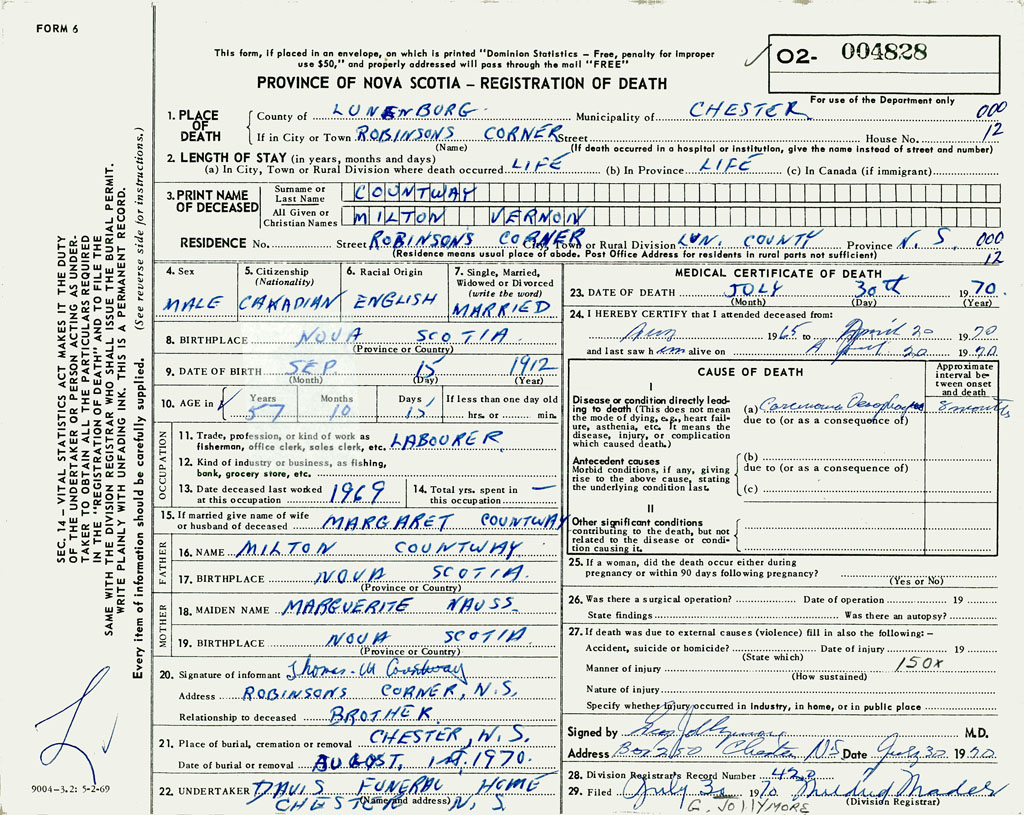 FORM 6
This form, if placed in an envelope, on which is printed "Dominion Statistics – Free, penalty for improper
use $50," and properly addressed will pass through the mail "FREE"
O2- 004828
PROVINCE OF NOVA SCOTIA – REGISTRATION OF DEATH
For use of the Department only
1. PLACE OF DEATH
County of LUNENBURG Municipality of CHESTER 000
If in City or Town ROBINSONS CORNER Street House No. 12
(Name) (If death occurred in a hospital or institution, give the name instead of street and number)
2. LENGTH OF STAY (in years, months and days)
(a) In City, Town or Rural Division where death occurred LIFE (b) In Province LIFE (c) In Canada (if immigrant)
3. PRINT NAME OF DECEASED
Surname or Last Name COUNTWAY
All Given or Christian Names MILTON VERNON
RESIDENCE No. Street ROBINSONS CORNER City, Town or Rural Division LUN. COUNTY Province N. S. 000
(Residence means usual place of abode. Post Office Address for residents in rural parts not sufficient) 12
4. Sex
MALE
5. Citizenship
(Nationality)
CANADIAN
6. Racial Origin
ENGLISH
7. Single, Married,
Widowed or Divorced
(write the word)
MARRIED
8. BIRTHPLACE NOVA SCOTIA
(Province or Country)
9. DATE OF BIRTH SEP. 15 1912
(Month) (Day) (Year)
10. AGE in Years Months Days If less than one day old
57 10 15 hrs. or min.
OCCUPATION
11. Trade, profession, or kind of work as
fisherman, office clerk, sales clerk, etc. LABOURER
12. Kind of industry or business, as fishing,
bank, grocery store, etc.
13. Date deceased last worked
at this occupation 1969
14. Total yrs. spent in
this occupation —
15. If married give name of wife
or husband of deceased MARGARET COUNTWAY
FATHER
16. NAME MILTON COUNTWAY
17. BIRTHPLACE NOVA SCOTIA
(Province or Country)
MOTHER
18. MAIDEN NAME MARGUERITE NAUSS
19. BIRTHPLACE NOVA SCOTIA
(Province or Country)
20. Signature of informant Thomas M Countway
Address ROBINSONS CORNER, N.S.
Relationship to deceased BROTHER
21. Place of burial, cremation or removal CHESTER, N.S.
Date of burial or removal AUGUST, 1st, 1970.
22. UNDERTAKER DAVIS FUNERAL HOME
(Name and address)
CHESTER N. S.
MEDICAL CERTIFICATE OF DEATH
23. DATE OF DEATH JULY 30th 1970.
(Month) (Day)
24. I HEREBY CERTIFY that I attended deceased from:
Aug 1965 to April 20 1970
and last saw him alive on April 20 1970.
CAUSE OF DEATH
Approximate
interval be-
tween onset
and death
I
Disease or condition directly lead-
ing to death (This does not mean
the mode of dying, e.g., heart failure,
asthenia, etc. It means the
disease, injury, or complication
which caused death.)
(a) 8 months
due to (or as a consequence of)
Antecedent causes
Morbid conditions, if any, giving
rise to the above cause, stating
the underlying condition last.
(b)
due to (or as a consequence of)
(c)
II
Other significant conditions
contributing to the death, but not
related to the disease or condi-
tion causing it.
25. If a woman, did the death occur either during
pregnancy or within 90 days following pregnancy?
(Yes or No)
26. Was there a surgical operation? Date of operation 19
State findings Was there an autopsy?
27. If death was due to external causes (violence) fill in also the following: –
Accident, suicide or homicide? Date of injury 19
(State which)
150X
Manner of injury
(How sustained)
Nature of injury
Specify whether injury occurred in industry, in home, or in public place
Signed by M.D.
Address Box 250 Chester N.S. Date July 30 1970
28. Division Registrar's Record Number 420
29. Filed July 30 1970 Mildred Mader
(Division Registrar)
G. JOLLYMORE
SEC. 14 – VITAL STATISTICS ACT MAKES IT THE DUTY
OF THE UNDERTAKER OR PERSON ACTING AS UNDER-
TAKER TO OBTAIN ALL THE PARTICULARS REQUIRED
IN THE "REGISTRATION OF DEATH" AND TO FILE THE
SAME WITH THE DIVISION REGISTRAR WHO SHALL ISSUE THE BURIAL PERMIT.
WRITE PLAINLY WITH UNFADING INK. THIS IS A PERMANENT RECORD.
Every item of information should be carefully supplied. (See reverse side for instructions.)
9004-3.2: 5-2-69